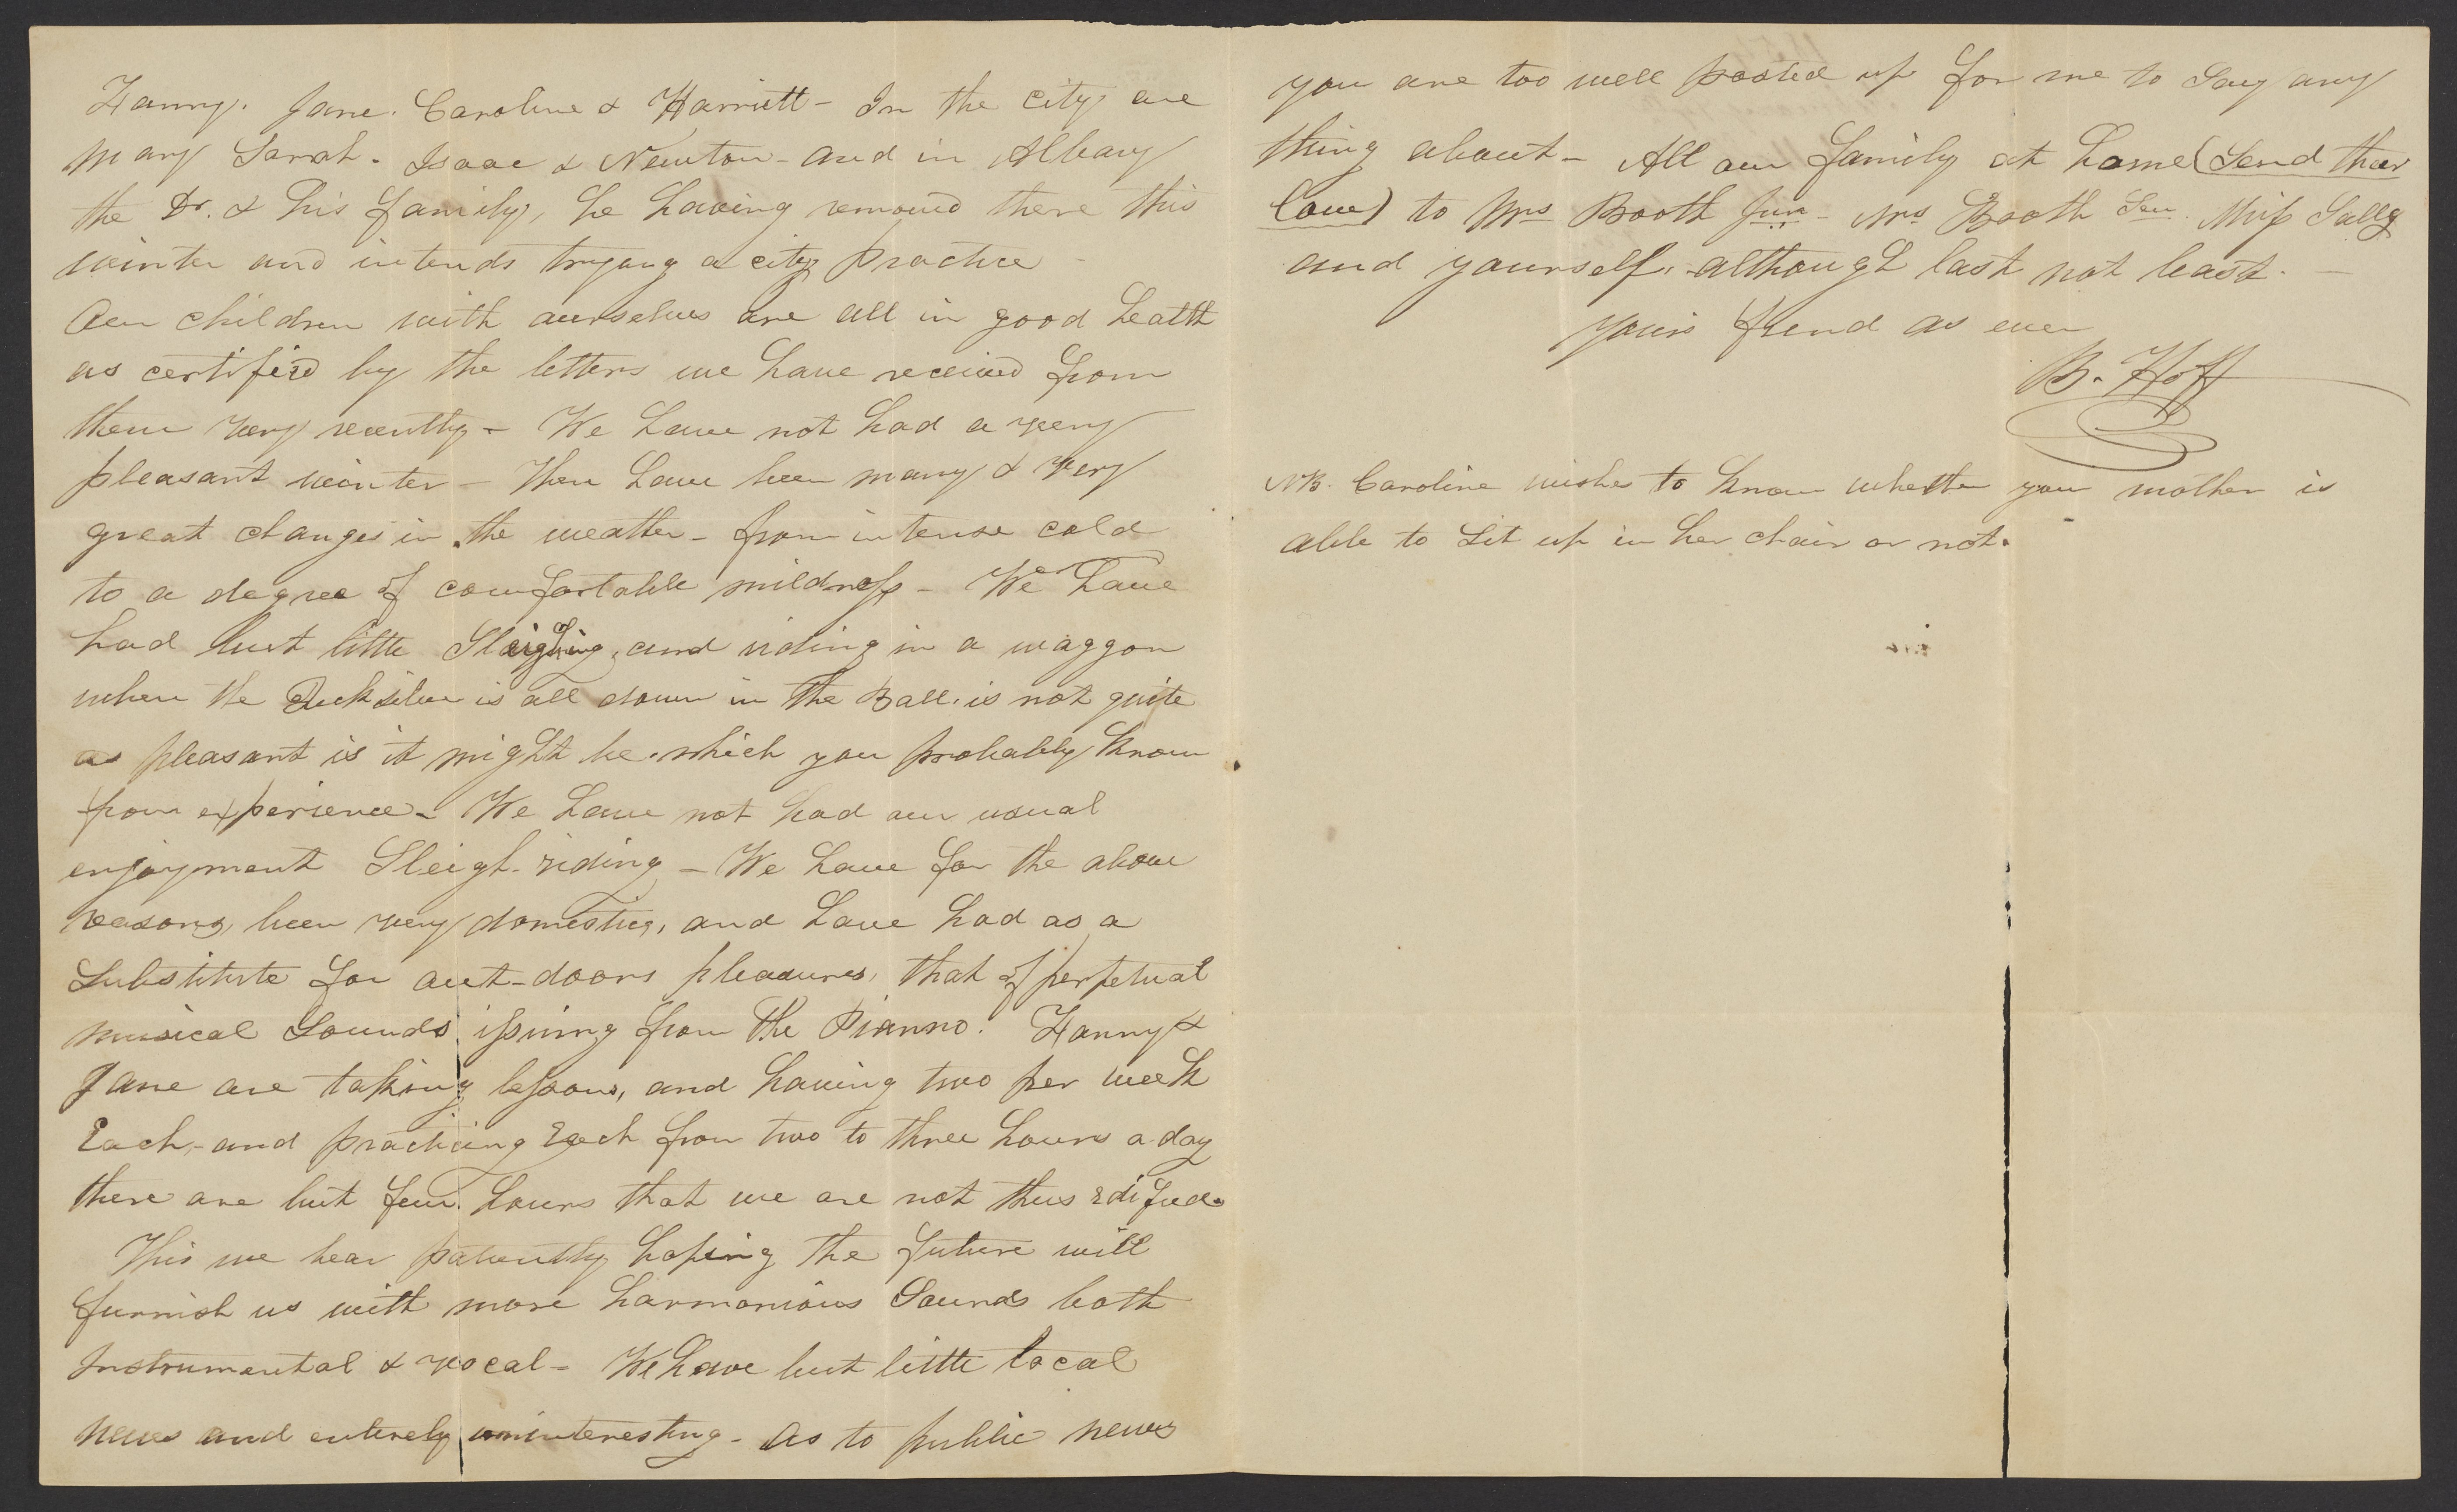 Fanny. Jane. Caroline & Harriett - In the city are
Mary Sarah. Isaac & Newton - and in Albany
the Dr. & his family, he having removed there this
winter and intends trying a city practice -
Our children with ourselves are all in good health
as certified by the letters we have received from
them very recently - We have not had a very
pleasant winter - There have been many & very
great changes in the weather - from intense cold
to a degree of comfortable mildness - We have
had but little Sleighing, and riding in a waggon
when the Quicksilver is all down in the Ball. is not quite
as pleasant is it might be. which you probably know
from experience - We have not had our usual
enjoyment Sleigh-riding - We have for the above
reasons, been very domestic, and have had as a
Substitute for out-doors pleasures, that of perpetual
musical Sounds issuing from the Pianno. Fanny &
Jane are taking lessons, and having two per week
Each, - and practicing Each from two to three hours a day
there are but few hours that we are not thus edified.
This we bear patiently hoping the future will
furnish us with more harmonious Sounds both
Instrumental & vocal - We have but little local
news and entirely uninteresting - As to public news
you are too well posted up for me to Say any
thing about - All our family at home (Send their
love) to Mrs Booth Jun - Mrs Booth Sen. Miss Sally
and yourself, although last not least. -
yours friend as ever
B. Hoff
NB. Caroline wishes to know whether your mother is
able to Sit up in her chair or not.